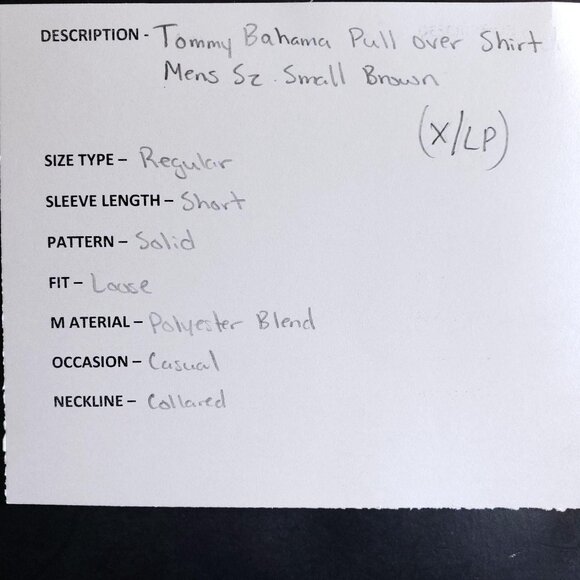 DESCRIPTION - Tommy Bahama Pull over Shirt
Mens Sz. Small Brown
(X/LP)
SIZE TYPE – Regular
SLEEVE LENGTH – Short
PATTERN – Solid
FIT – Loose
M ATERIAL – Polyester Blend
OCCASION – Casual
NECKLINE – Collared